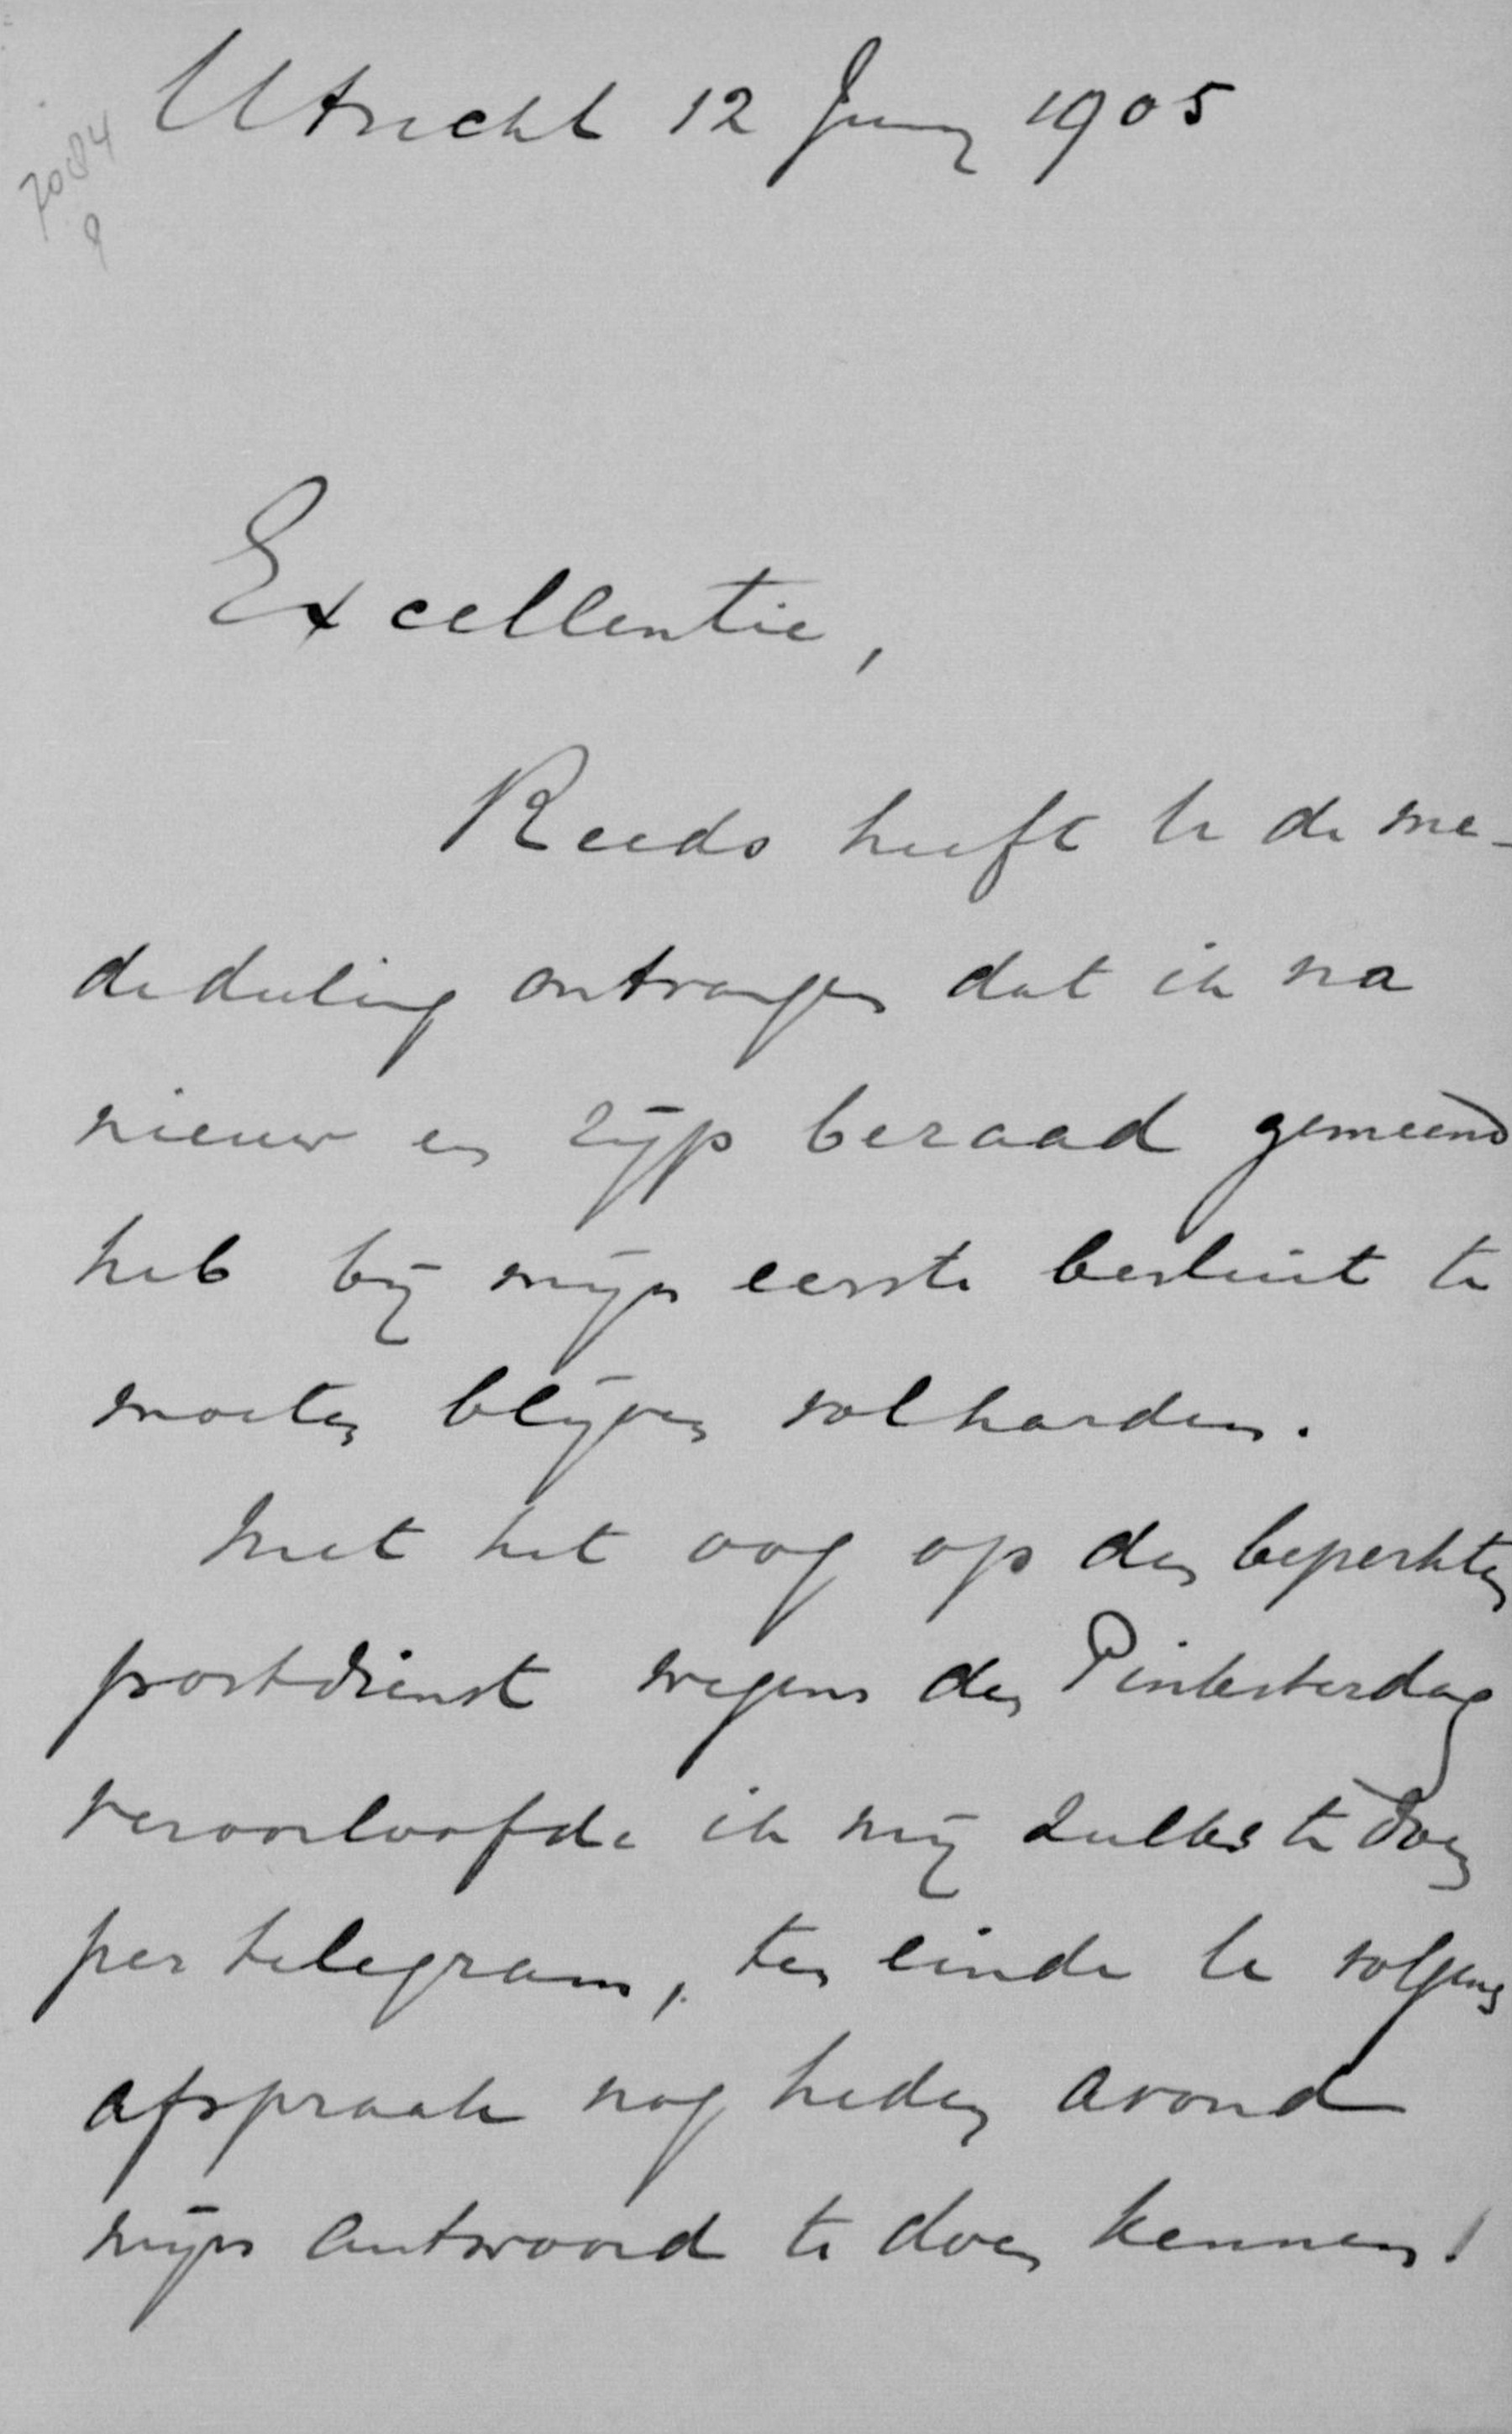 Utrecht 12 Juny 1905
7084
9
Excellentie,
Reeds heeft U de me-
dedeeling ontvangen dat ik na
nieuw en rijp beraad gemeend
heb bij mijn eerste besluit te
moeten blijven volharden.
Met het oog op den beperkten
postdienst wegens den Pinksterdag
veroorloofde ik mij zulks te doen
per telegram, ten einde U volgens
afspraak nog heden avond
mijn antwoord te doen kennen!